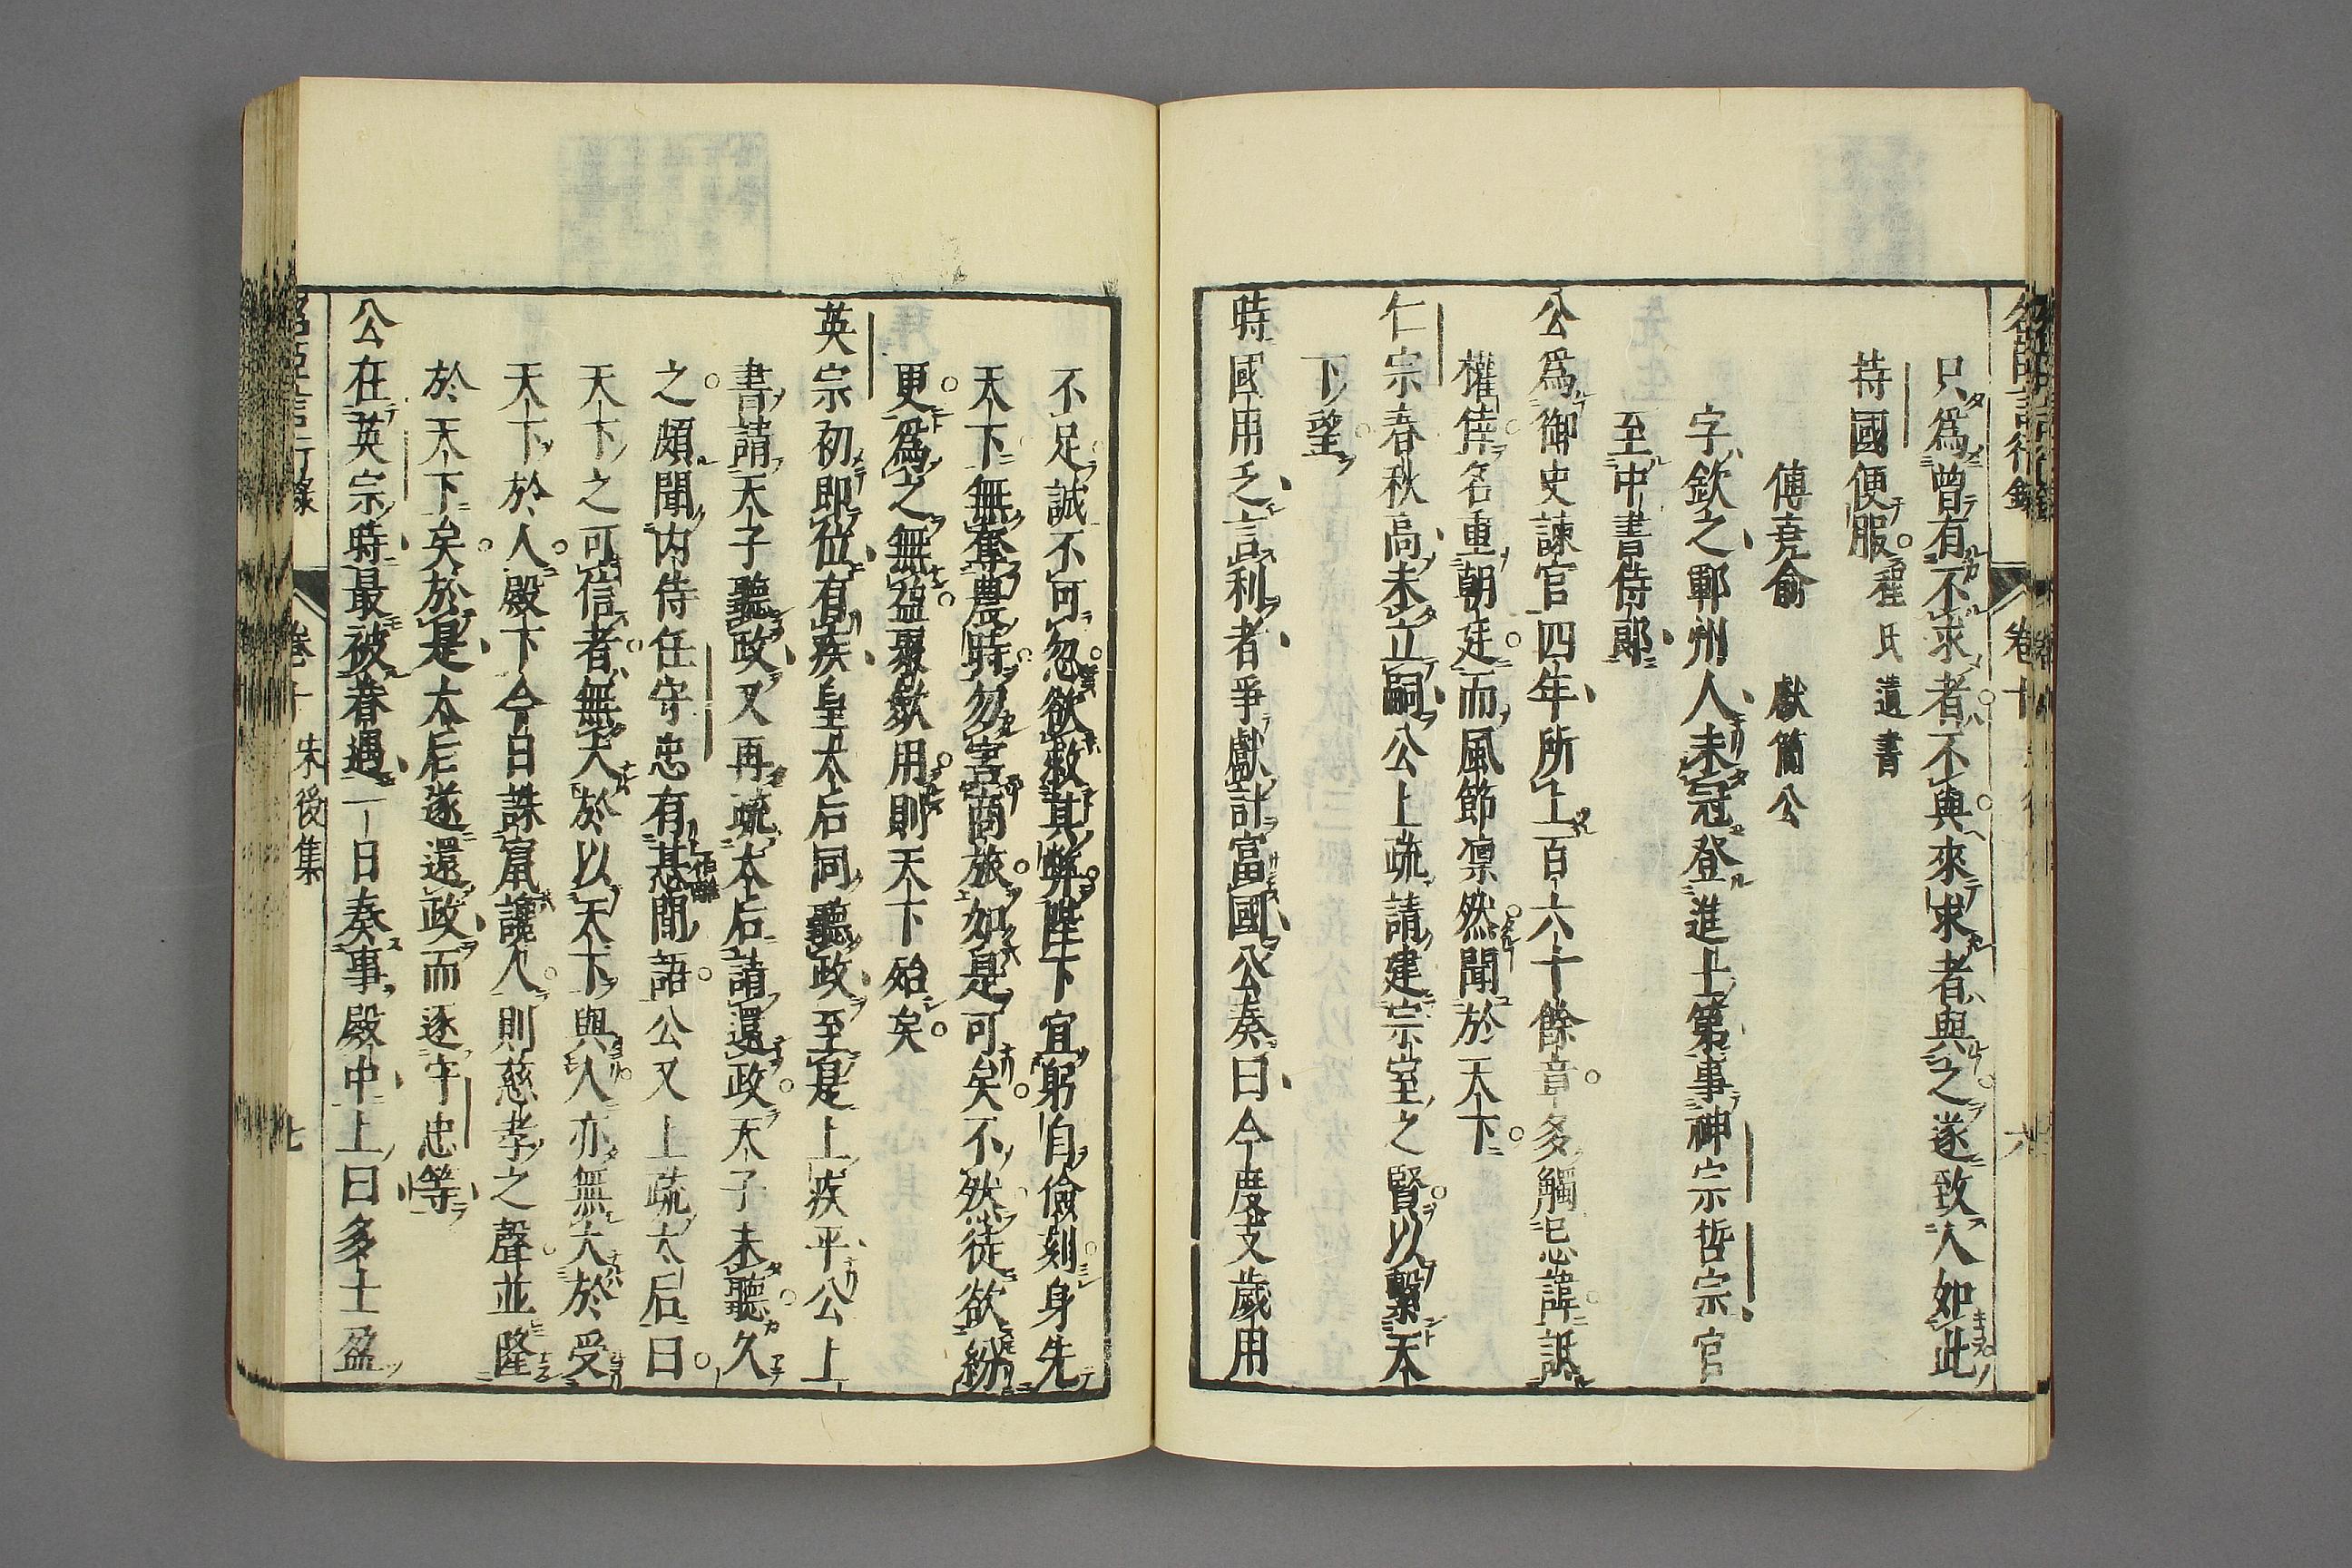 只爲曾有不求者不與來求者與之遂致人如此
持國便服程氏遺書
傅堯俞 獻簡公
字欽之鄆州人未冠登進士第事神宗哲宗官
至中書侍郎
公爲御史諫官四年所上百六十餘章多觸忌諱詆
權倖名重朝廷而風節凛然聞於天下
仁宗春秋高未立嗣公上疏請建宗室之賢以繫天
下望
時國用乏言利者爭獻計富國公奏曰今度支歲用
不足誠不可忽欲救其弊陛下宜躬自儉刻身先
天下無奪農時勿害商旅如是可矣不然徒欲紛
更爲之無益聚歛用則天下殆矣
英宗初即位有疾皇太后同聽政至是上疾平公上
書請天子聽政又再疏太后請還政天子未聽久
之頗聞内侍任守忠有惎間語公又上疏太后曰
天下之可信者無大於以天下與人亦無大於受
天下於人殿下今日誅竄讒人則慈孝之聲並隆
於天下矣於是太后遂還政而逐守忠等
公在英宗時最被眷遇一日奏事殿中上曰多士盈
卷十 宋後集 七